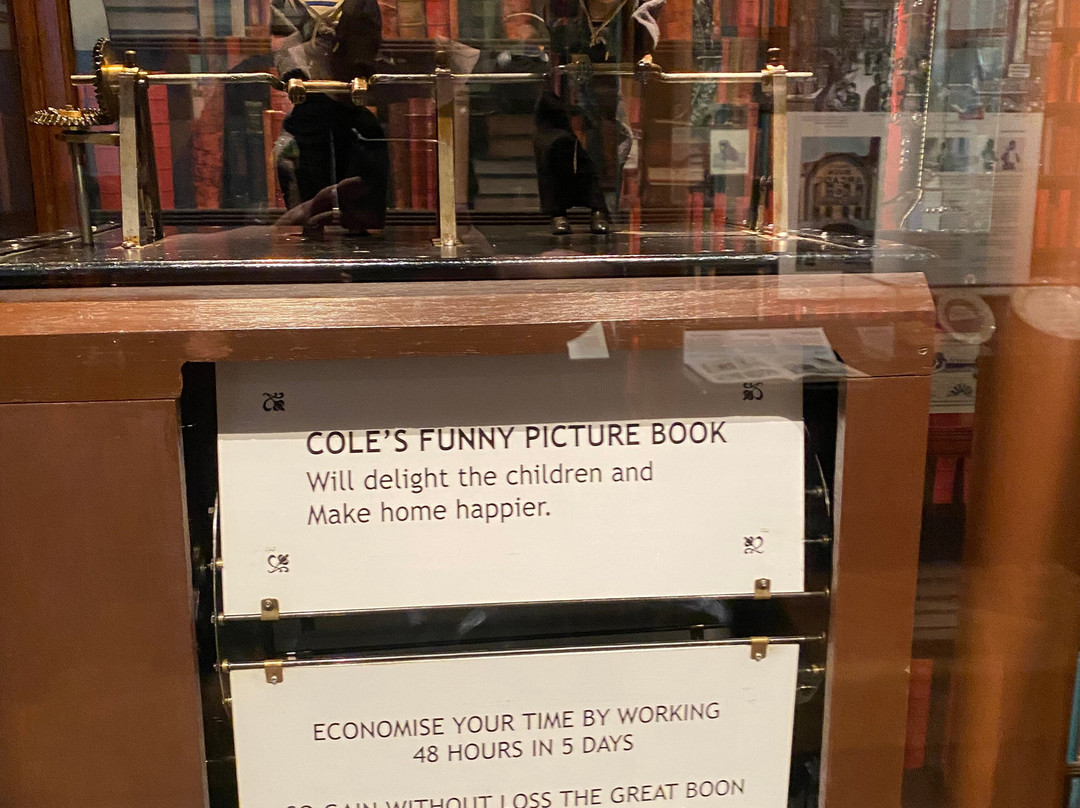 COLE'S FUNNY PICTURE BOOK
Will delight the children and
Make home happier.
ECONOMISE YOUR TIME BY WORKING
48 HOURS IN 5 DAYS
SO GAIN WITHOUT LOSS THE GREAT BOON